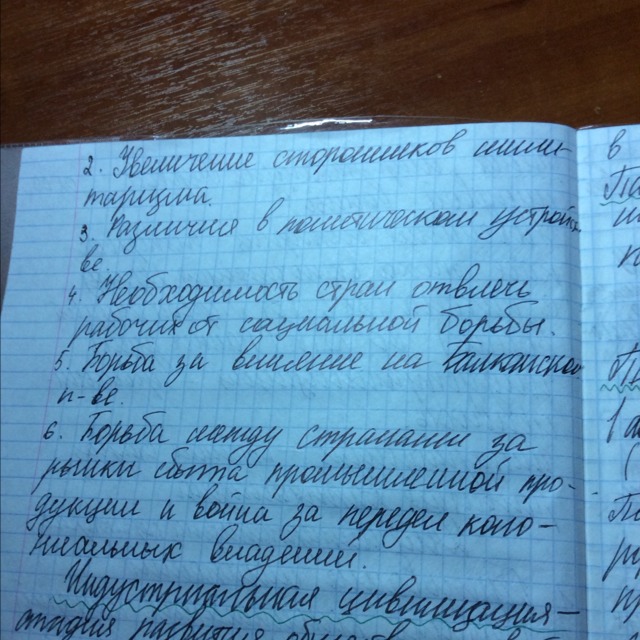 2. Увеличение сторонников мили-
таризма.
3. Различия в политическом устройст
ве.
4. Необходимость стран отвлечь
рабочих от социальной борьбы.
5. Борьба за влияние на Балканском
п-ве.
6. Борьба между странами за
рынки сбыта промышленной про-
дукции и война за передел коло-
ниальных владений.
Индустриальная цивилизация-
стадия развития